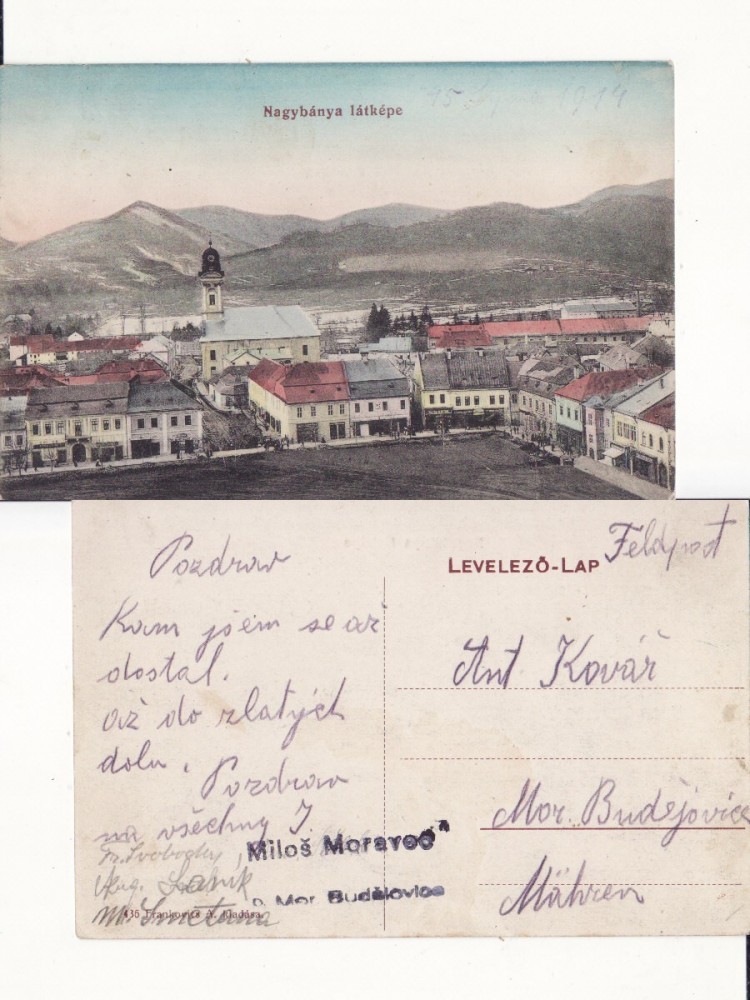 Nagybánya látképe
15 1914
Pozdrav
Kam jsem se až
dostal.
až do zlatých
dolu.
Pozdrav
na všechny J.
Fr. Svobodny
Aug.
M. Smetana
435 Frankovits A. kiadása.
Miloš Moravec
Mor. Budějovice
LEVELEZŐ-LAP
Feldpost
Ant Kovář
Mor. Budějovice
Mähren